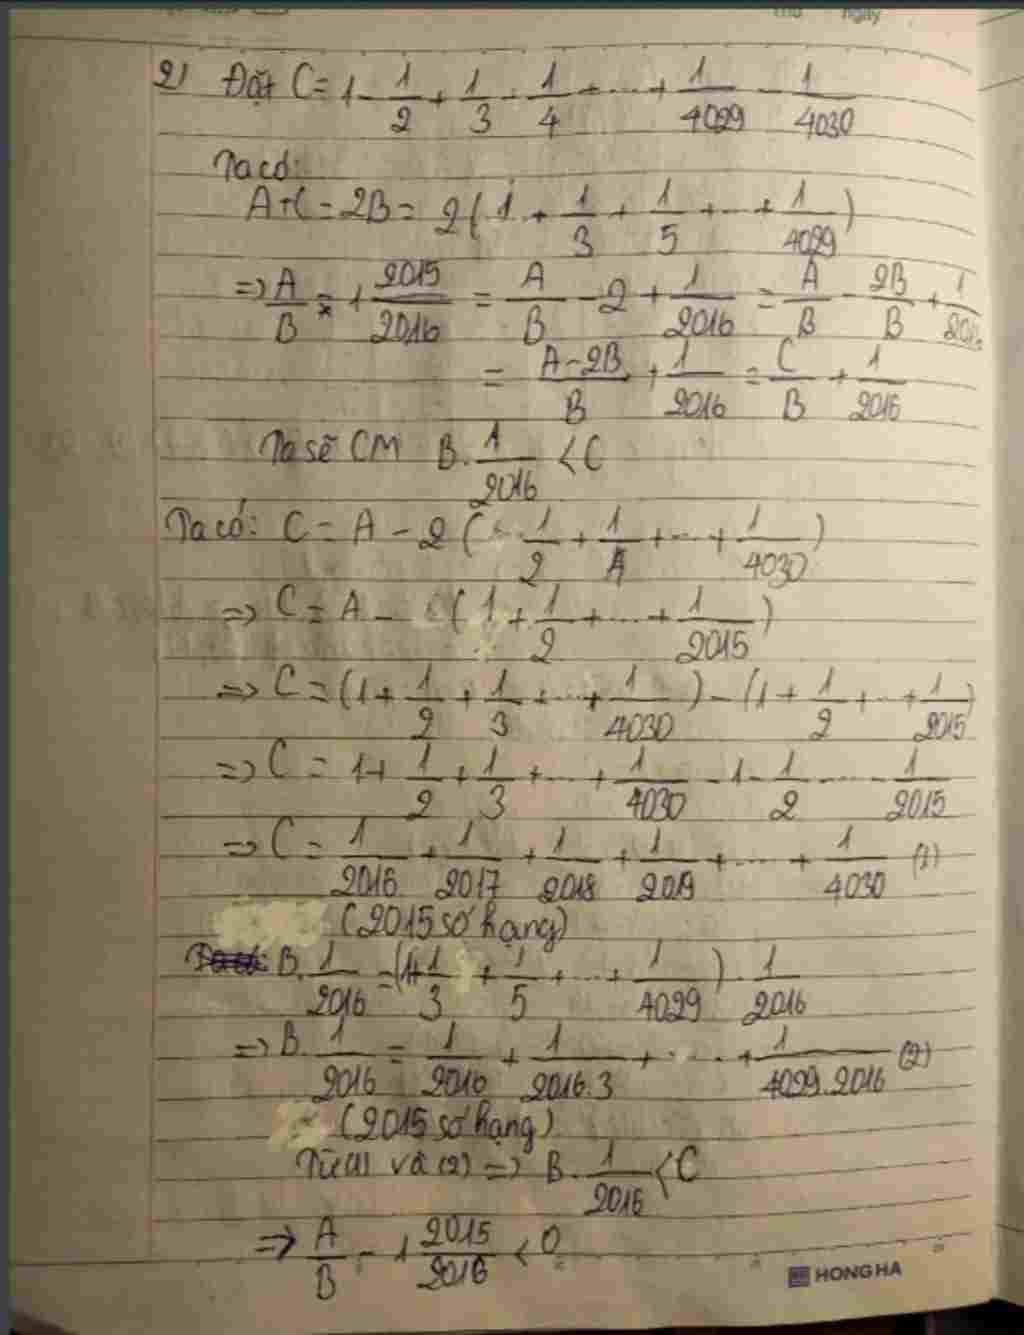 thứ ngày
2) Đặt C = 1 - 1/2 + 1/3 - 1/4 + ... + 1/4029 - 1/4030
Ta có:
A + C = 2B = 2(1 + 1/3 + 1/5 + ... + 1/4029)
=> A/B = 1 2015/2016 = A/B - 2 + 1/2016 = A/B - 2B/B + 1/2016
= (A - 2B)/B + 1/2016 = C/B + 1/2016
Ta sẽ CM B. 1/2016 < C
Ta có: C = A - 2(1/2 + 1/4 + ... + 1/4030)
=> C = A - (1 + 1/2 + ... + 1/2015)
=> C = (1 + 1/2 + 1/3 + ... + 1/4030) - (1 + 1/2 + ... + 1/2015)
=> C = 1 + 1/2 + 1/3 + ... + 1/4030 - 1 - 1/2 ... - 1/2015
=> C = 1/2016 + 1/2017 + 1/2018 + 1/2019 + ... + 1/4030 (1)
(2015 số hạng)
B. 1/2016 = (1 + 1/3 + 1/5 + ... + 1/4029) . 1/2016
=> B. 1/2016 = 1/2016 + 1/2016.3 + ... + 1/4029.2016 (2)
(2015 số hạng)
Từ (1) và (2) => B. 1/2016 < C
=> A/B - 1 2015/2016 < 0
HONG HA